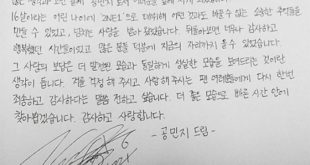 16살이라는 어린 나이에 '2NE1'으로 데뷔해 어떤 것과도 바꿀수 없는 소중한 추억들을
만들 수 있었고, 넘치는 사랑을 받게 되었습니다. 뒤돌아보면 너무나 감사하고
행복했던 시간들이었고 많은 분들 덕분에 지금의 자리까지 올 수 있었습니다.
그 사랑의 보답은 더 발전된 모습과 동일한 성실한 모습을 보여드리는 것이란
생각이 듭니다. 저를 걱정 해 주시고 사랑해 주시는 팬 여러분들에게 다시 한번
죄송하고 감사하다는 말씀을 전하고 싶습니다. 더 좋은 모습으로 빠른 시간 안에
찾아뵙겠습니다. 감사하고 사랑합니다.
- 공민지 드림 -